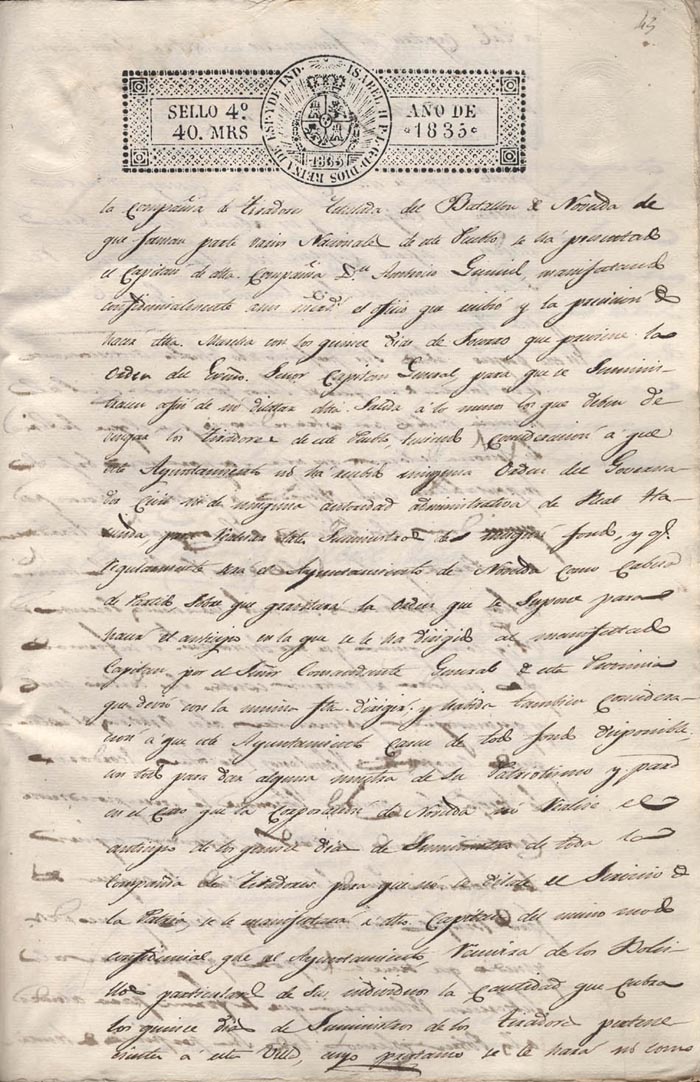 43
SELLO 4º
40. MRS
ISABEL II P. L. G. D. DIOS REINA DE ESP. Y DE IND.
1835
AÑO DE
1835
la Compañia de Tiradores titulada del Batallon de Novelda de
que forman parte varios Nacionales de este Pueblo, se ha presentado
el Capitan de dha. Compañia Dn. Antonio manifestando
confidencialmente a sus el oficio que recibió y la precision de
hacer dha. Marcha con los quince dias de Socorro que previene la
Orden del Exmo. Señor Capitan General, para que se Suminis
trasen afin de no dilatar dha. Salida á lo menos los que deben de
vengar los Tiradores de este Pueblo, teniendo consideracion á que
este Ayuntamiento no ha recibido ninguna Orden del Governa
dor Civil ni de ninguna autoridad administrativa de Real Ha
cienda para realizar dhos. Suministros de ningun fondo, y qe.
regularmente sera el Ayuntamiento de Novelda como Cabeza
de Partido sobre que gravitara la Orden que se Supone para
hacer el anticipo en la que se le ha dirigido al manifestado
Capitan por el Señor Comandante General de esta Provincia
que devió con la misma fha. dirigir, y habida tambien considera
cion á que este Ayuntamiento Carece de todo fondo disponible,
con todo para dar alguna muestra de su Patriotismo y para
en el Caso que la Corporacion de Novelda no realice el
anticipo de los quince dias de Suministros de toda la
Compañia de Tiradores para que no se dilate el Servicio de
la Patria, se le manifestará á dho. Capitan del mismo modo
confidencial que el Ayuntamiento de los Bolsi
llos particulares de sus individuos la Cantidad que cubra
los quince dias de Suministros de los Tiradores pertene
cientes á esta Villa, cuyo prestamo se le hará no como